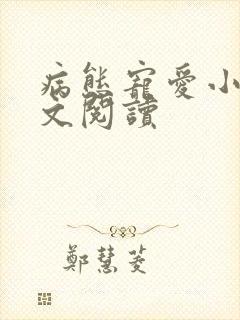 病態寵愛小
文閱讀
鄭慧菱